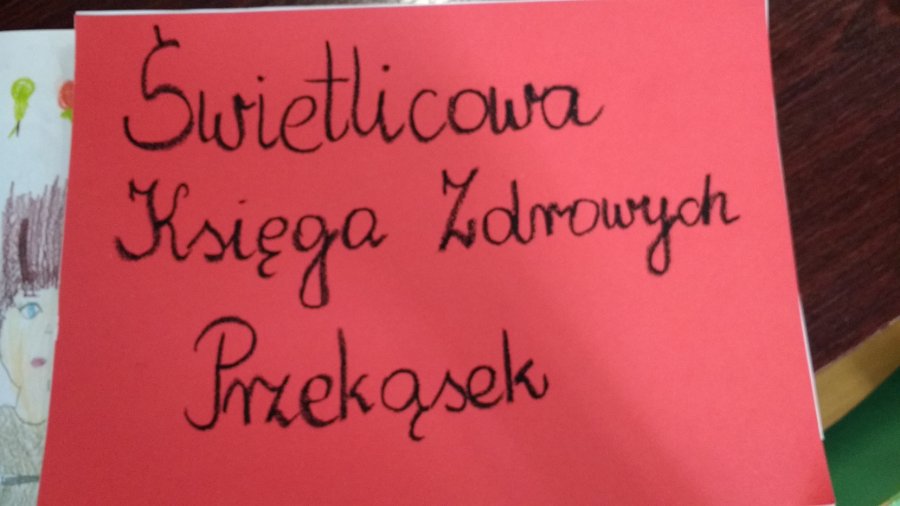 Świetlicowa
Księga Zdrowych
Przekąsek